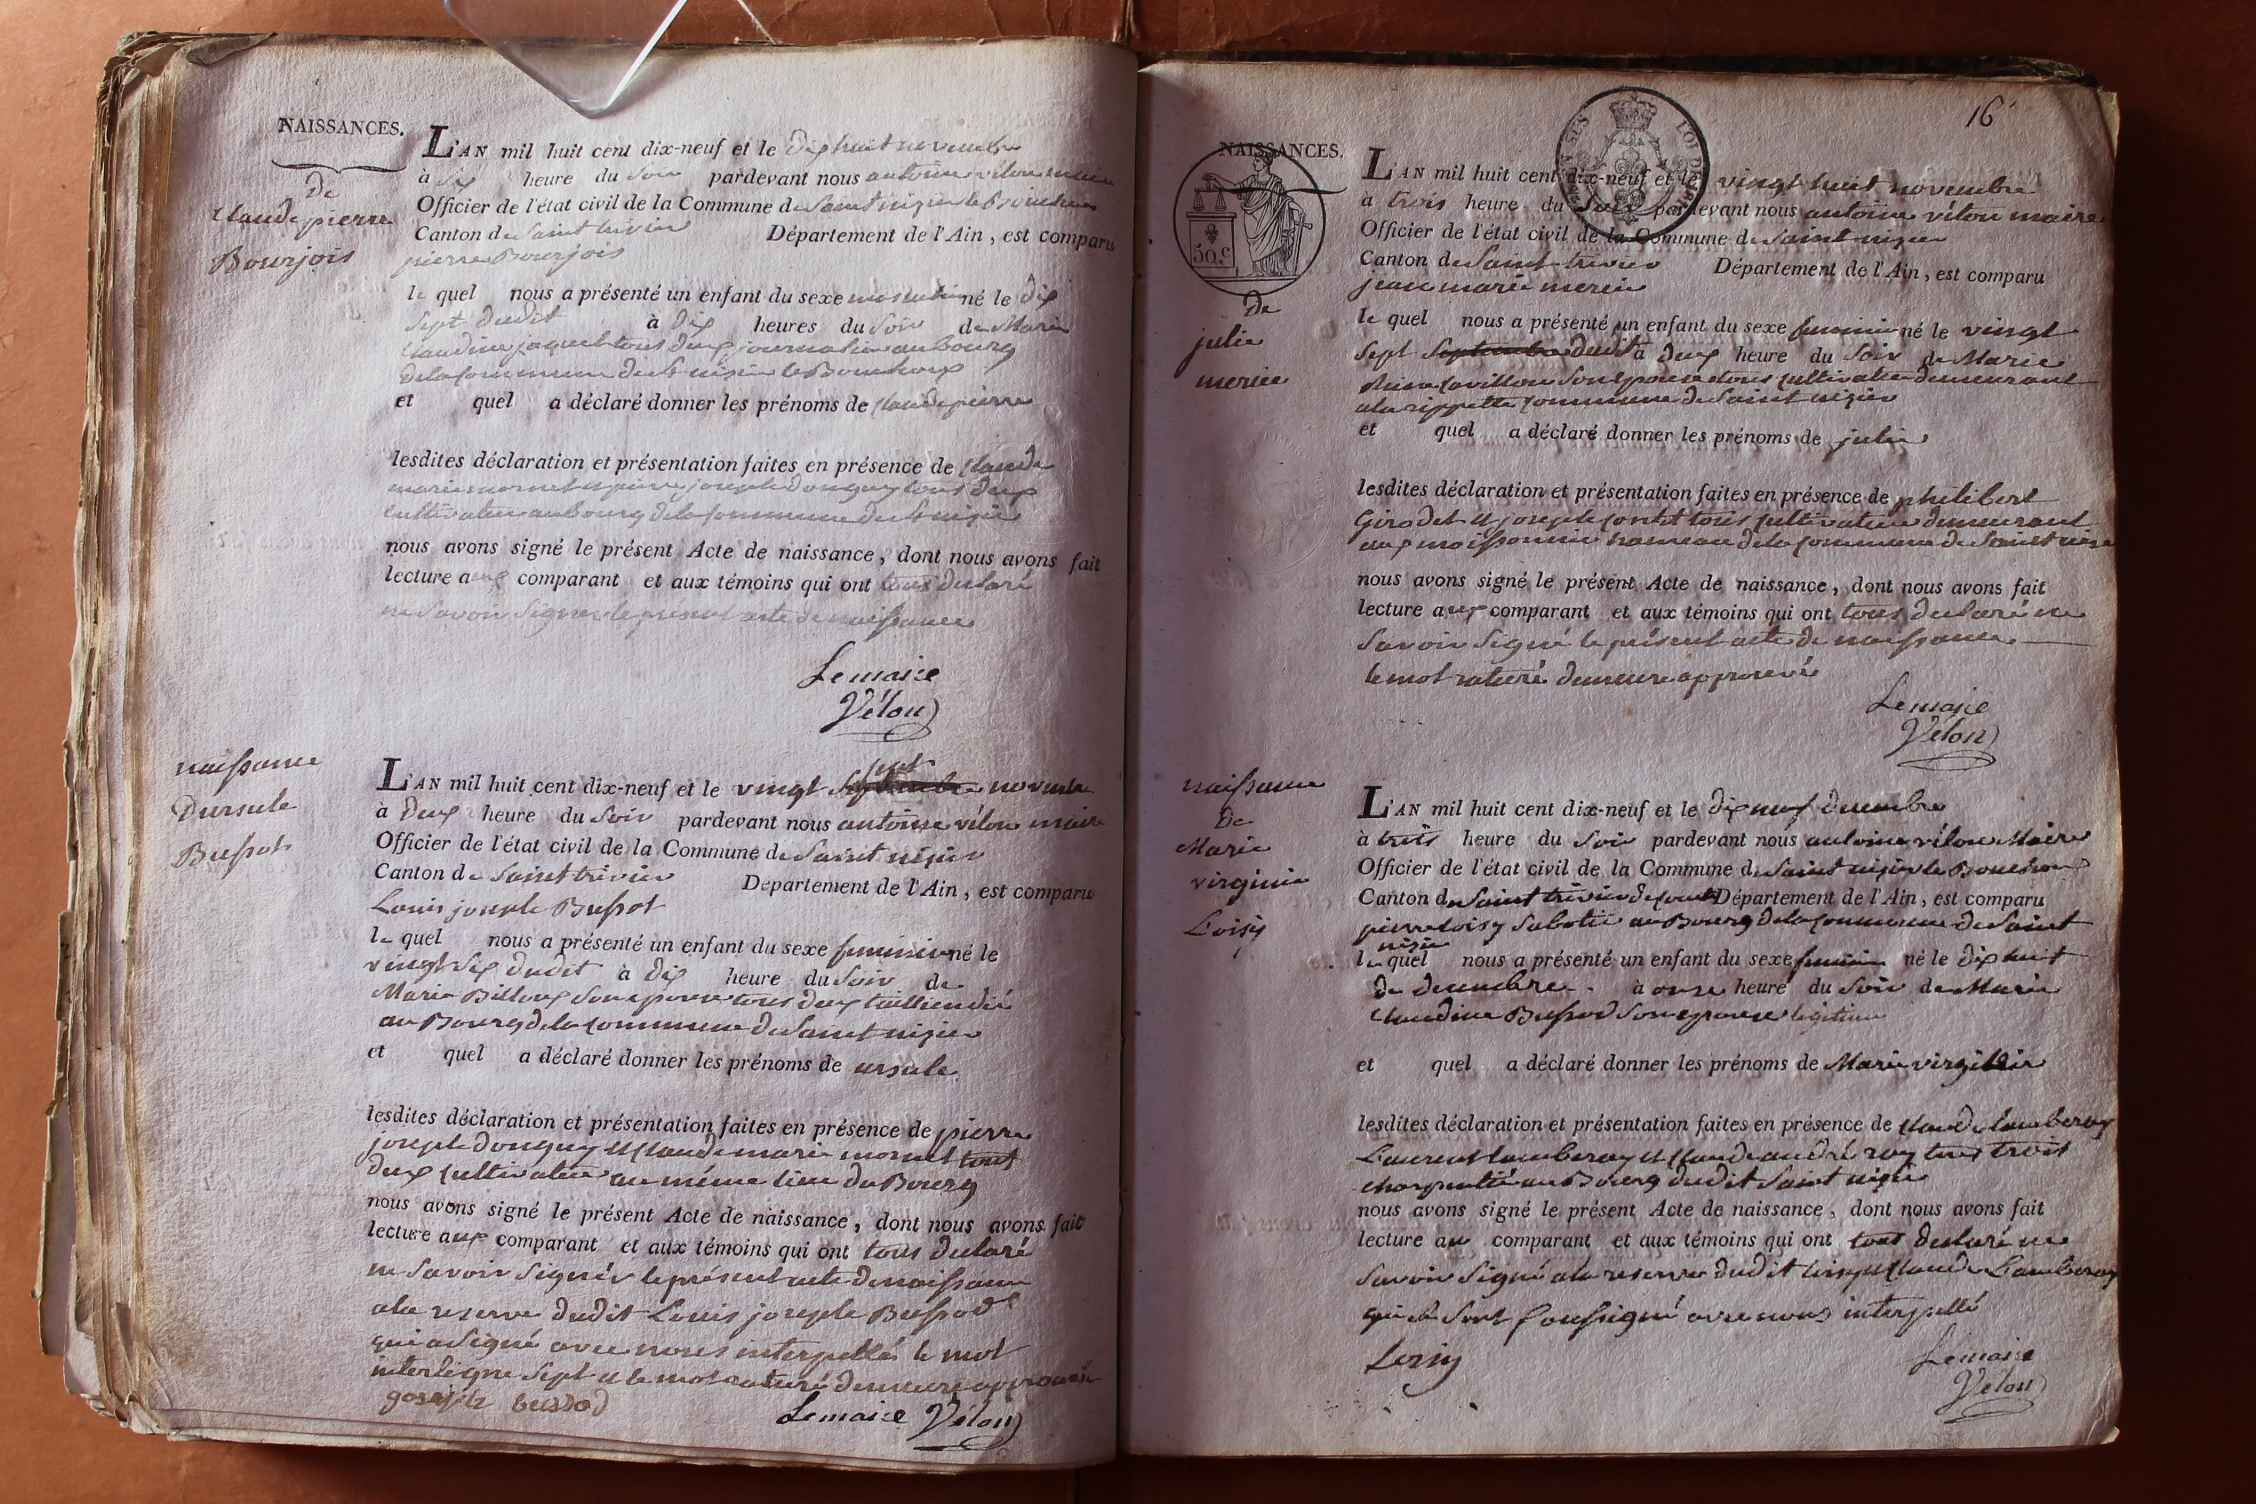 NAISSANCES.
de
Claude pierre
Bourjois
L'AN mil huit cent dix-neuf et le dix huit novembre
à six heure du soir pardevant nous antoine vélon maire
Officier de l'état civil de la Commune de Saint nizier le Bouchoux
Canton de Saint trivier Département de l'Ain, est comparu
pierre Bourjois
le quel nous a présenté un enfant du sexe masculin né le dix
sept dudit à dix heures du soir de Marie
Claudine jaquet tous deux journalier au bourg
de la Commune de St nizier le Bouchoux
et quel a déclaré donner les prénoms de Claude pierre
lesdites déclaration et présentation faites en présence de Claude
marie mornet et pierre joseph donguy tous deux
cultivateur au bourg de la Commune de St nizier
nous avons signé le présent Acte de naissance, dont nous avons fait
lecture aux comparant et aux témoins qui ont tous declaré
ne Savoir Signer le present acte de naissance
Le maire
Vélon
naissance
Dursule
Bussot
L'AN mil huit cent dix-neuf et le vingt sept novembre
à deux heure du Soir pardevant nous antoine vélon maire
Officier de l'état civil de la Commune de Saint nizier
Canton de Saint trivier Département de l'Ain, est comparu
Louis joseph Bussot
le quel nous a présenté un enfant du sexe feminin né le
vingt Six dudit à dix heure du Soir de
Marie Billoux Son epouse tous deux taillendié
au Bourg de la Commune de Saint nizier
et quel a déclaré donner les prénoms de ursule
lesdites déclaration et présentation faites en présence de pierre
joseph donguy et Claude marie mornet tous
deux Cultivateur au même lieu du Bourg
nous avons signé le présent Acte de naissance, dont nous avons fait
lecture aux comparant et aux témoins qui ont tous declaré
ne Savoir Signér le présent acte de naissance
a la reserve dudit Louis joseph Bussod
qui a Signé avec nous interpellés le mot
interligne Sept et le mot raturé demeure approuvés
joseph bussod
Le maire Vélon
16
NAISSANCES.
50 c
de
julie
L'AN mil huit cent dix-neuf et le vingt huit novembre
à trois heure du Soir pardevant nous antoine vélon maire
Officier de l'état civil de la Commune de Saint nizier
Canton de Saint trivier Département de l'Ain, est comparu
jean marie
le quel nous a présenté un enfant du sexe feminin né le vingt
sept Septembre dudit à deux heure du Soir de Marie
Son epouse tous cultivateur demeurant
a la rippette Commune de Saint nizier
et quel a déclaré donner les prénoms de julie
lesdites déclaration et présentation faites en présence de philibert
Girodet et joseph tous cultivateur demeurant
aux hameau de la Commune de Saint
nous avons signé le présent Acte de naissance, dont nous avons fait
lecture aux comparant et aux témoins qui ont tous declaré ne
Savoir Signé le présent acte de naissance
le mot raturé demeure approuvé
Le maire
Vélon
naissance
De
Marie
virginie
Loisy
L'AN mil huit cent dix-neuf et le dix neuf decembre
à trois heure du Soir pardevant nous antoine vélon Maire
Officier de l'état civil de la Commune de Saint nizier le Bouchoux
Canton de Saint trivier de Court Département de l'Ain, est comparu
pierre Loisy Sabotié au Bourg de la Commune de Saint
nizier
le quel nous a présenté un enfant du sexe feminin né le dix huit
de decembre à onze heure du Soir de Marie
Claudine Bussod Son epouse legitime
et quel a déclaré donner les prénoms de Marie virginie
lesdites déclaration et présentation faites en présence de Claude Lamberoy
Laurent Lamberoy et Claude andré roy tous trois
charpentié au Bourg dudit Saint nizier
nous avons signé le présent Acte de naissance, dont nous avons fait
lecture au comparant et aux témoins qui ont tous declaré ne
Savoir Signé a la reserve dudit Loisy et Claude Lamberoy
qui se Sont Soussigné avec nous interpellé
Loisy
Le maire
Vélon